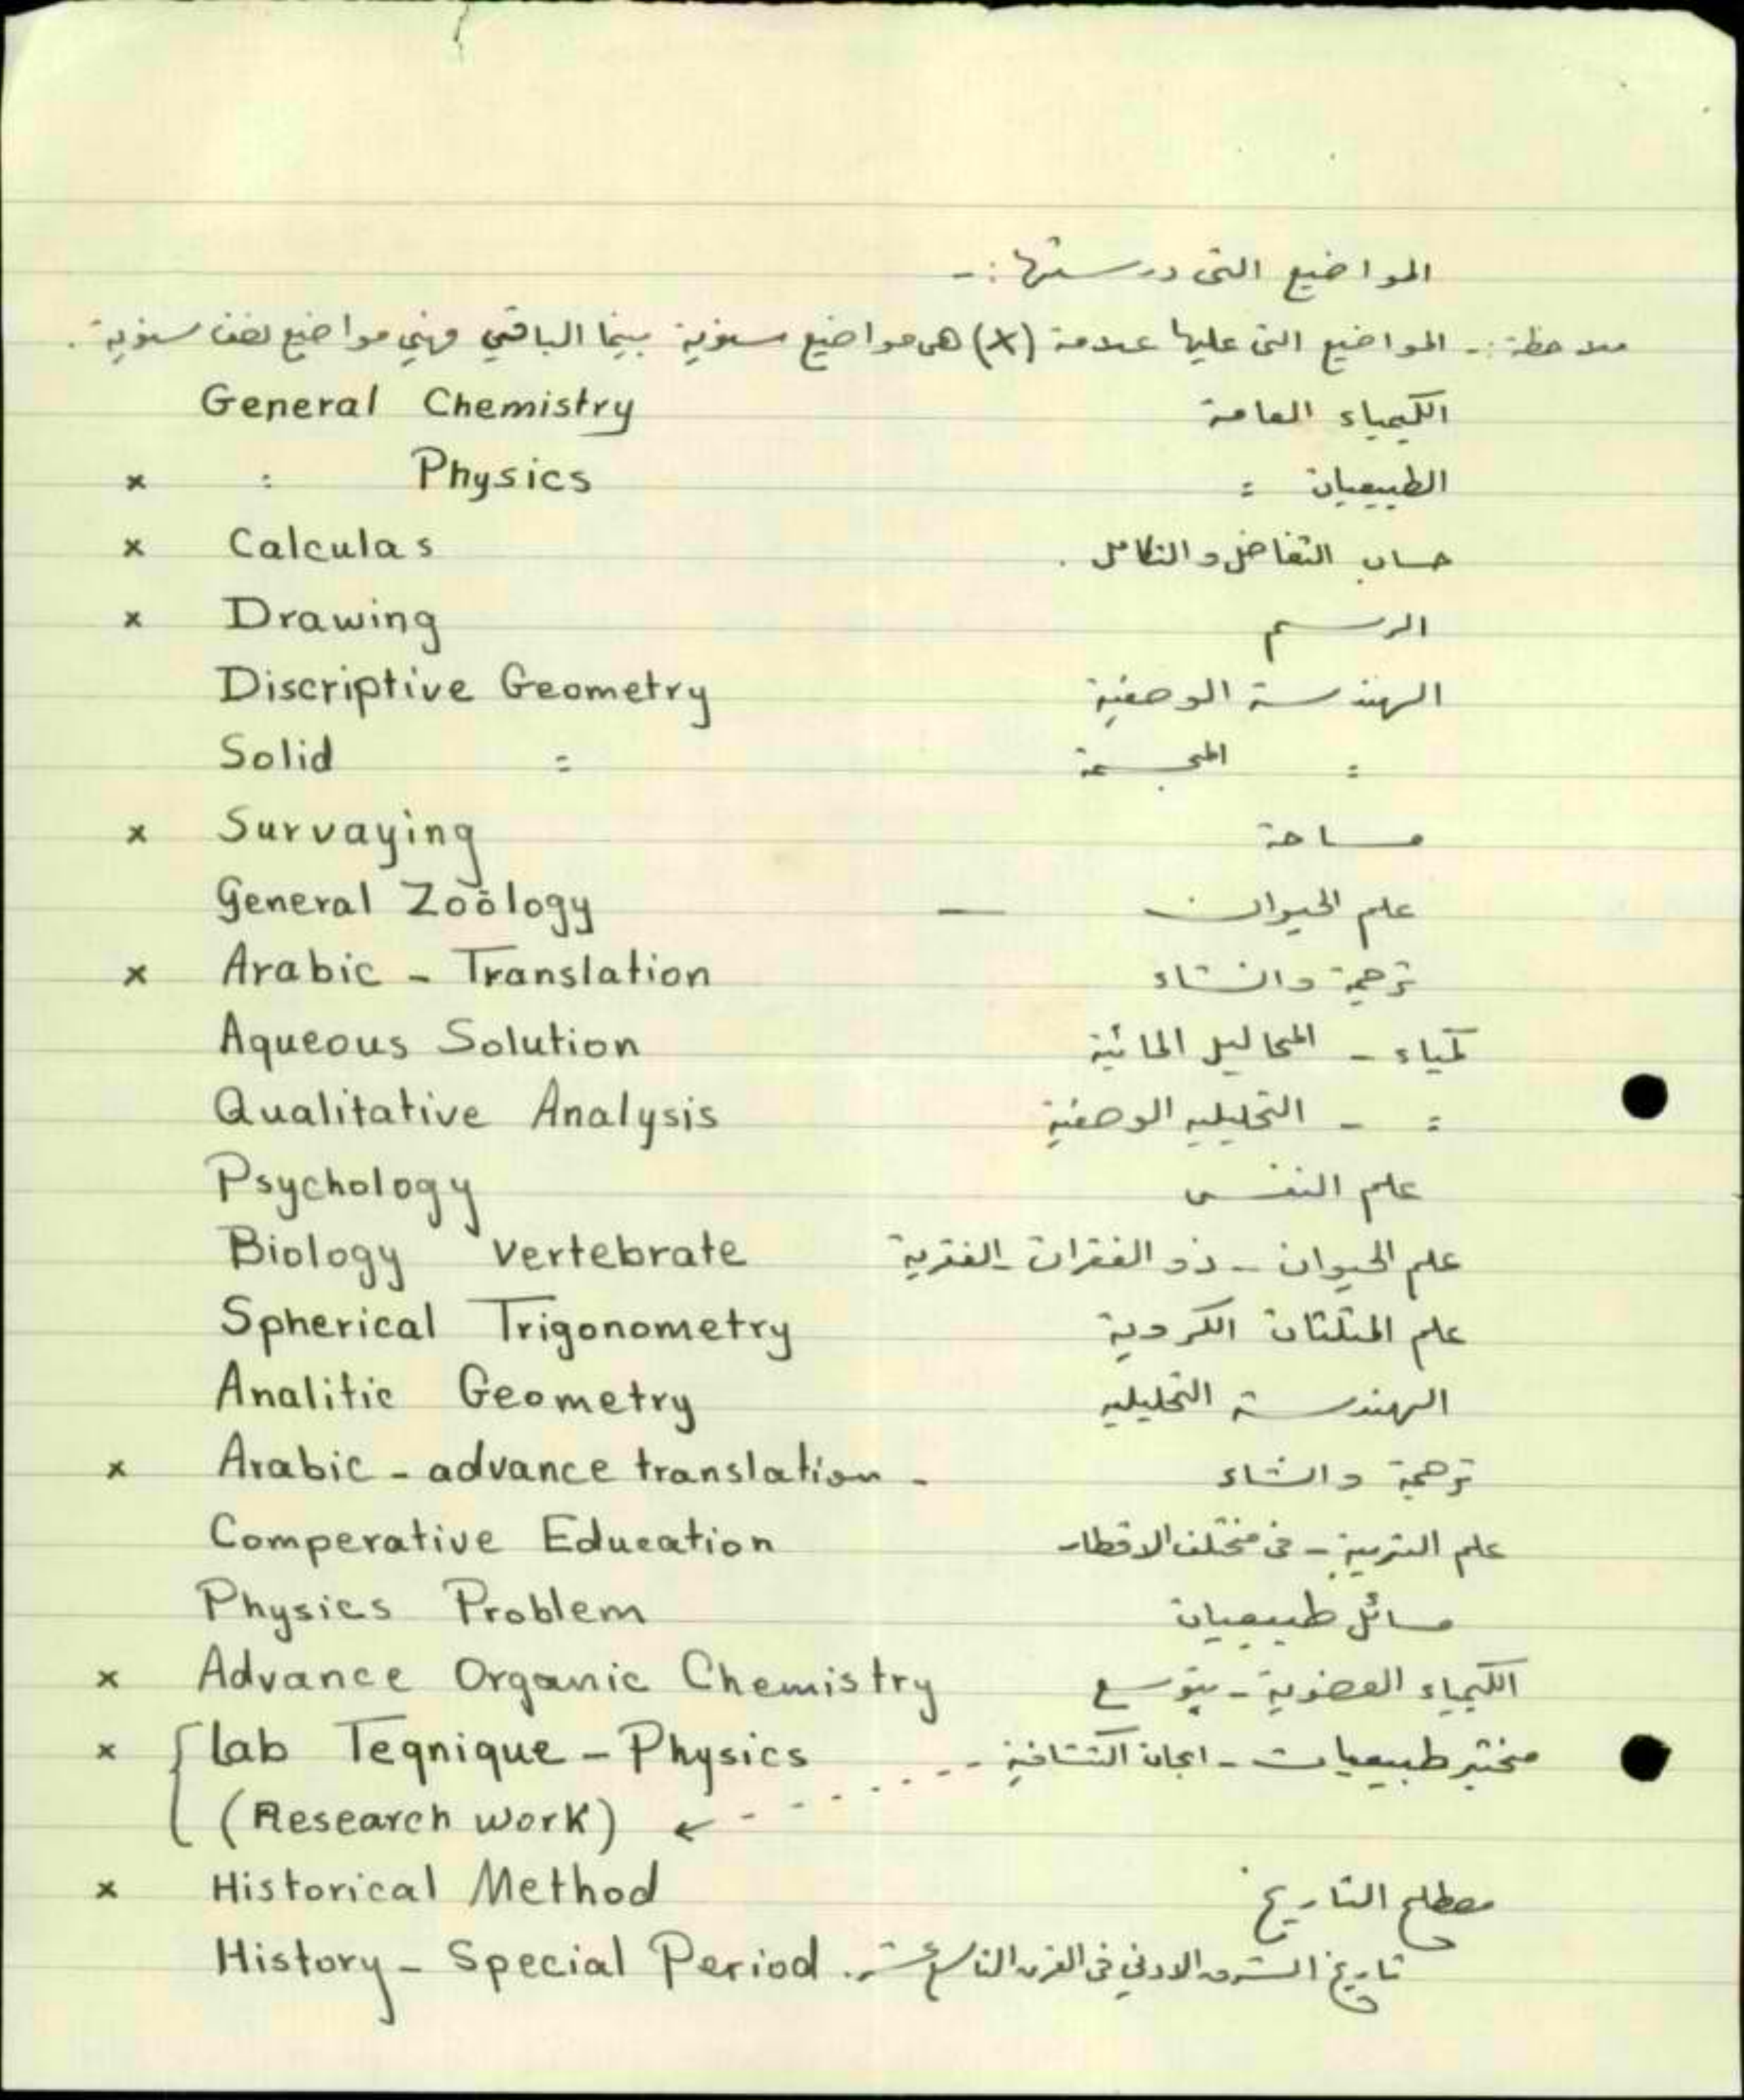 المواضيع التى درستها :-
ملاحظة :- المواضيع التى عليها علامة (x) هى مواضيع سنوية بينما الباقي فهي مواضيع نصف سنوية .
General Chemistry الكيمياء العامة
x : Physics الطبيعيات =
x Calculas حساب التفاضل والتكامل .
x Drawing الرسم
Discriptive Geometry الهندسة الوصفية
Solid = = المجسمة
x Survaying مساحة
General Zoölogy — علم الحيوان
x Arabic - Translation ترجمة وانشاء
Aqueous Solution كمياء - المحاليل المائية
Qualitative Analysis = - التحليليه الوصفية
Psychology علم النفس
Biology vertebrate علم الحيوان - ذو الفقرات - الفقرية
Spherical Trigonometry علم المثلثات الكروية
Analitic Geometry الهندسة التحليليه
x Arabic - advance translation - ترجمة وانشاء
Comperative Education علم التربية - فى مختلف الاقطار
Physics Problem مسائل طبيعيات
x Advance Organic Chemistry الكيمياء العضوية - بتوسع
x Lab Teqnique - Physics مختبر طبيعيات - ابحاث اكتشافية
(Research work) ←
x Historical Method مصطلح التاريخ
History - Special Period . تاريخ الشرق الادنى فى القرن التاسع عشر